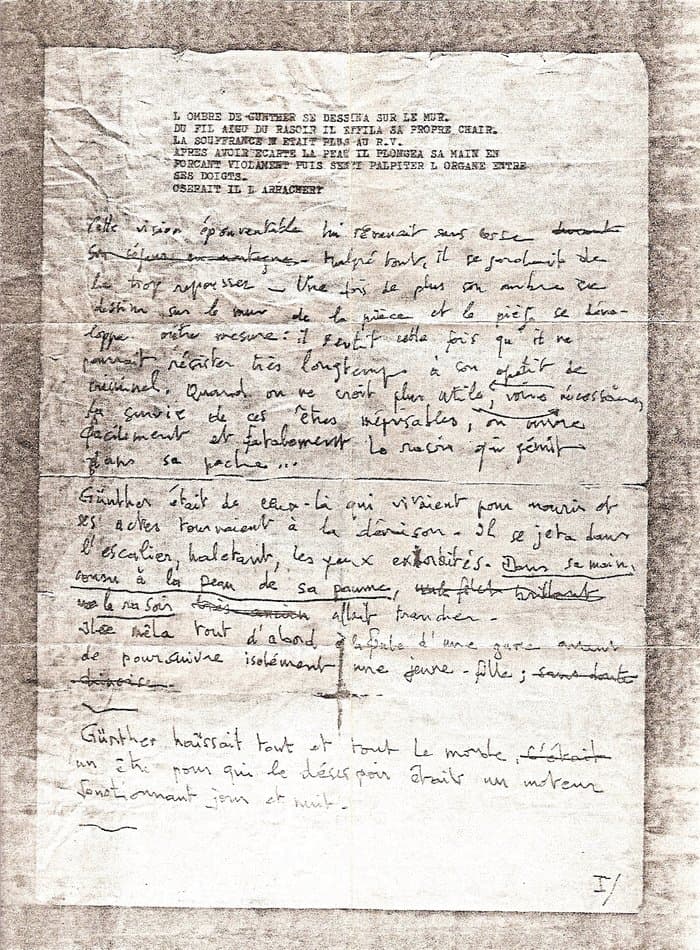 L OMBRE DE GUNTHER SE DESSINA SUR LE MUR.
DU FIL AIGU DU RASOIR IL EFFILA SA PROPRE CHAIR.
LA SOUFFRANCE N ETAIT PLUS AU R.V.
APRES AVOIR ECARTE LA PEAU IL PLONGEA SA MAIN EN
FORCANT VIOLAMENT PUIS SENTI PALPITER L ORGANE ENTRE
SES DOIGTS.
OSERAIT IL L ARRACHER?
Cette vision épouventable lui revenait sans cesse durant
son séjour en montagne. Malgré tout, il se gardait de
la trop repousser – Une fois de plus son ombre se
dessina sur le mur de la pièce et le piège se déve-
loppa outre mesure : il sentit cette fois qu'il ne
pourrait résister très longtemps à son apétit de
criminel. Quand on ne croit plus utile, voire nécessaire,
la survie de ces êtres méprisables, on ouvre
facilement et fatalement le rasoir qui gémit
dans sa poche...
Günther était de ceux-là qui vivaient pour mourir et
ses actes tournaient à la dérision. Il se jeta dans
l'escalier, haletant, les yeux exorbités. Dans sa main,
cousu à la peau de sa paume, brillant
le rasoir très ancien allait trancher.
Il se mêla tout d'abord à la foule d'une gare avant
de poursuivre isolément une jeune-fille ; sans doute
chinoise.
Günther haïssait tout et tout le monde, c'était
un être pour qui le désespoir était un moteur
fonctionnant jour et nuit.
I/